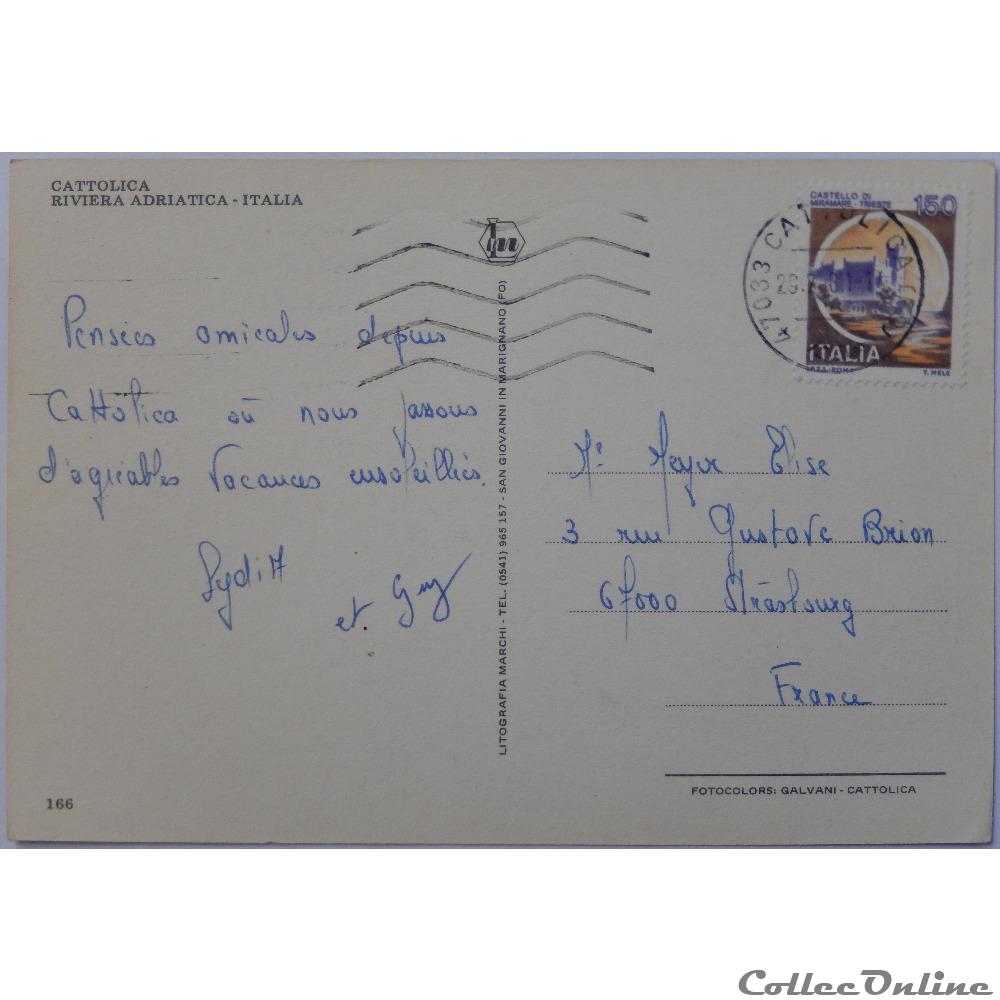 CATTOLICA
RIVIERA ADRIATICA - ITALIA
Pensées amicales depuis
Cattolica où nous passons
d'agréables vacances ensoleillées.
et Guy
166
LITOGRAFIA MARCHI - TEL. (0541) 965 157 - SAN GIOVANNI IN MARIGNANO (FO)
CASTELLO DI
MIRAMARE - TRIESTE
150
ITALIA
I.P.Z.S. ROMA
T. MELE
47033 CATTOLICA
Me Meyer Elise
3 rue Gustave Brion
67000 Strasbourg
France
FOTOCOLORS: GALVANI - CATTOLICA
CollecOnline